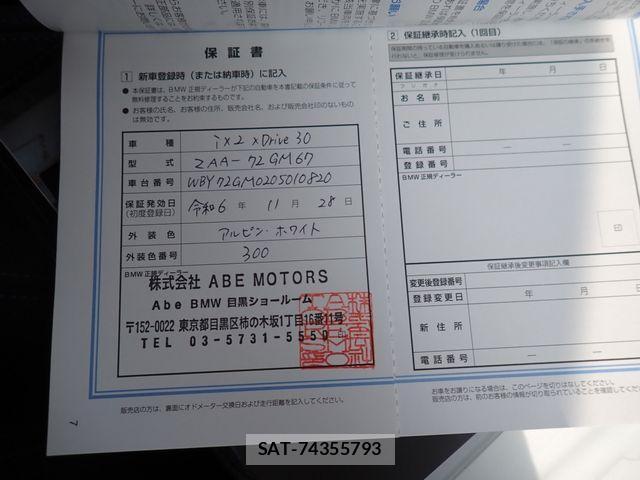 保証書
1 新車登録時（または納車時）に記入
● 本保証書は、BMW正規ディーラーが下記の自動車を本書記載の保証条件に従って
無料修理することをお約束するものです。
● お客様の氏名、お客様の住所、販売会社名、および販売会社印のないもの
は無効です。
車種 iX2 xDrive 30
型式 ZAA-72GM67
車台番号 WBY72GM0205010820
保証発効日
(初度登録日) 令和6年 11月 28日
外装色 アルピン・ホワイト
外装色番号 300
BMW正規ディーラー
株式会社 ABE MOTORS
Abe BMW 目黒ショールーム
〒152-0022 東京都目黒区柿の木坂1丁目16番11号
TEL 03-5731-5550 印
販売店の方は、裏面にオドメーター交換日および走行距離を記入してください。
7
2 保証継承時記入（1回目）
保証継承日 年 月 日
フリガナ
お名前
ご住所
電話番号 — —
登録番号
BMW正規ディーラー
印
保証継承後変更事項記入欄
変更後登録番号
登録変更日 年 月 日
新住所
電話番号 — —
お車をお譲りになる場合は、このページを切りはなしてください。
販売店の方は、前のお客様の情報が切り取られていることを確認して
SAT-74355793